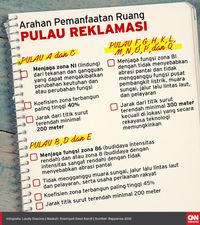 Arahan Pemanfaatan Ruang
PULAU REKLAMASI
PULAU A dan C
Menjaga zona NI (lindung)
dari tekanan dan gangguan
yang dapat menyebabkan
perubahan keutuhan dan
atau perubahan fungsi
Koefisien zona terbangun
paling tinggi 40%
Jarak dari titik surut
terendah minimum
200 meter
PULAU F, G, H, K, L,
M, N, O, P, dan Q
Menjaga fungsi zona B1
dengan tidak menyebabkan
abrasi pantai dan tidak
mengganggu fungsi pusat
pembangkit listrik, muara
sungai, jalur lalu lintas laut,
dan pelayaran
Jarak dari titik surut
terendah minimal 300 meter
kecuali di lokasi yang secara
rekayasa teknologi
memungkinkan
PULAU B, D dan E
Menjaga fungsi zona B6 (budidaya intensitas
rendah) dan atau zona 8 (budidaya dengan
intensitas sangat rendah) dengan tidak
menyebabkan abrasi pantai
Tidak mengganggu muara sungai, jalur lalu lintas laut
dan pelayaran, serta usaha perikanan rakyat
Koefisien zona terbangun paling tinggi 45%
Jarak titik surut terendah minimal 200 meter
CNN
Indonesia